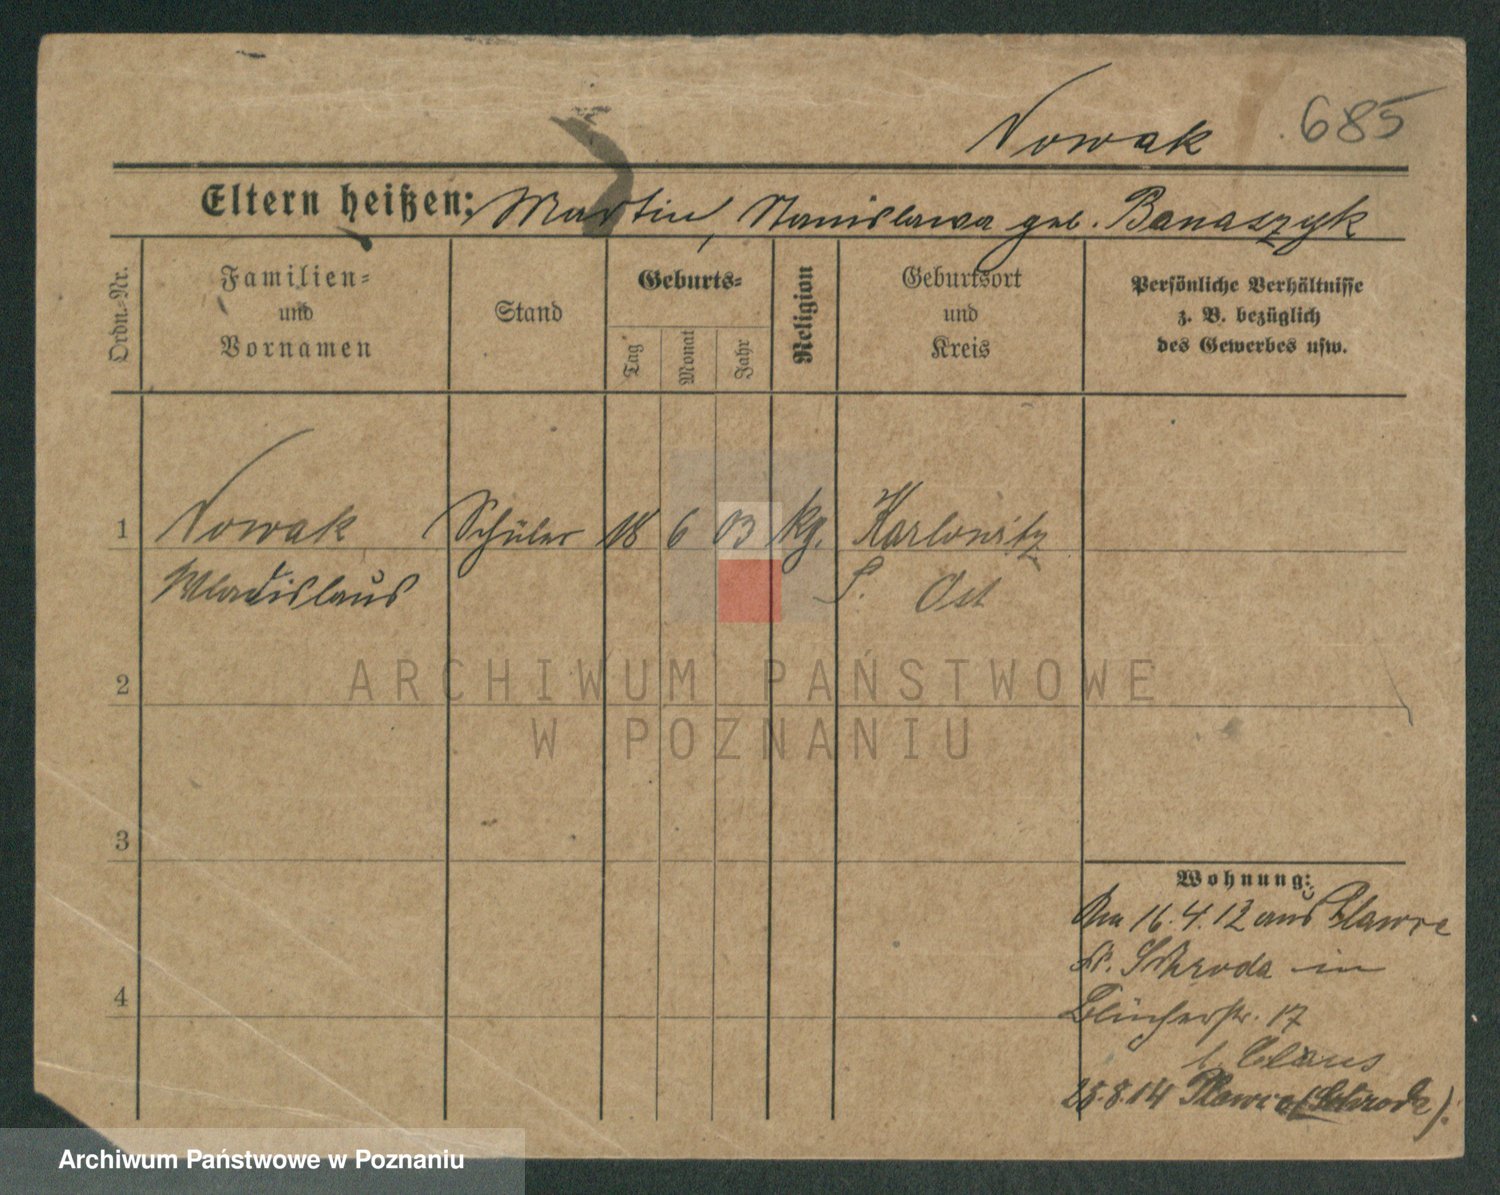 Nowak 685
Eltern heißen: Martin, Stanislawa geb. Banaszyk
Ordn.-Nr.
Familien-
und
Vornamen
Stand
Geburts-
Tag
Monat
Jahr
Religion
Geburtsort
und
Kreis
Persönliche Verhältnisse
z. B. bezüglich
des Gewerbes usw.
1 Nowak Schüler 18 6 03 kg. Karlowitz
Wladislaus P. Ost
2
3
4
Wohnung:
Am 16.4.12 aus Plawce
Kr. Schroda in
Blücherstr. 17
b. Claus
28.8.14 Plawce (Schroda).
ARCHIWUM PAŃSTWOWE
W POZNANIU
Archiwum Państwowe w Poznaniu